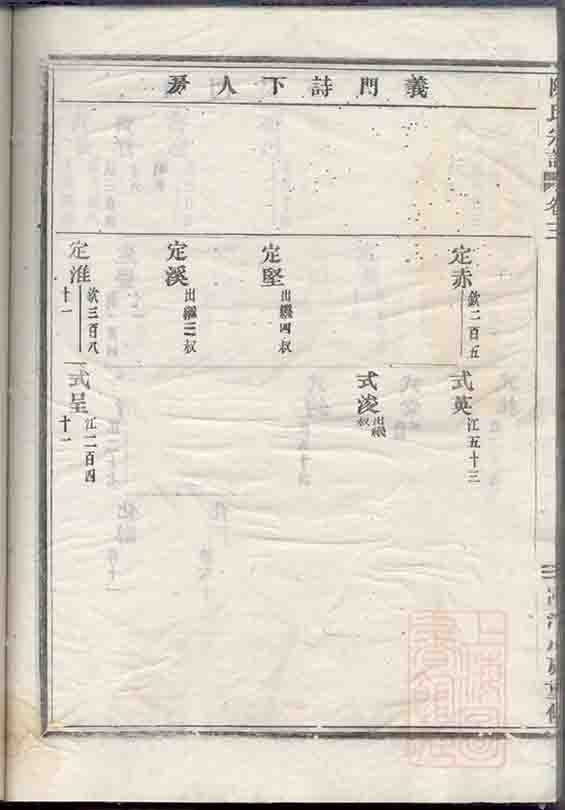 陳氏宗譜 卷三
義門詩下人房
定赤 欽二百五
式英 江五十三
式浚 出繼叔
定堅 出繼四叔
定溪 出繼三叔
定淮 欽三百八十一
式呈 江二百四十一
上海圖書館藏